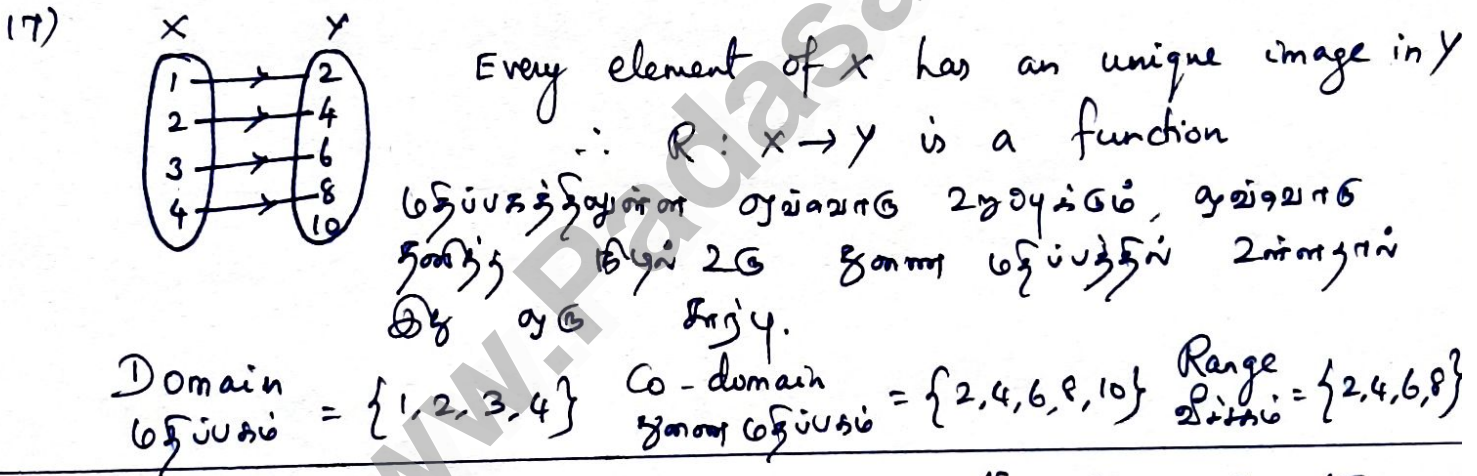 17)
X Y
1 2
2 4
3 6
4 8
10
Every element of X has an unique image in Y
∴ R : X → Y is a function
மதிப்பகத்திலுள்ள ஒவ்வொரு உறுப்புக்கும், ஒவ்வொரு
தனித்த நிழல் உரு துணை மதிப்பத்தில் உள்ளதால்
இது ஒரு சார்பு.
Domain மதிப்பகம் = {1, 2, 3, 4} Co-domain துணை மதிப்பகம் = {2, 4, 6, 8, 10} Range வீச்சகம் = {2,4,6,8}
www.Padasa